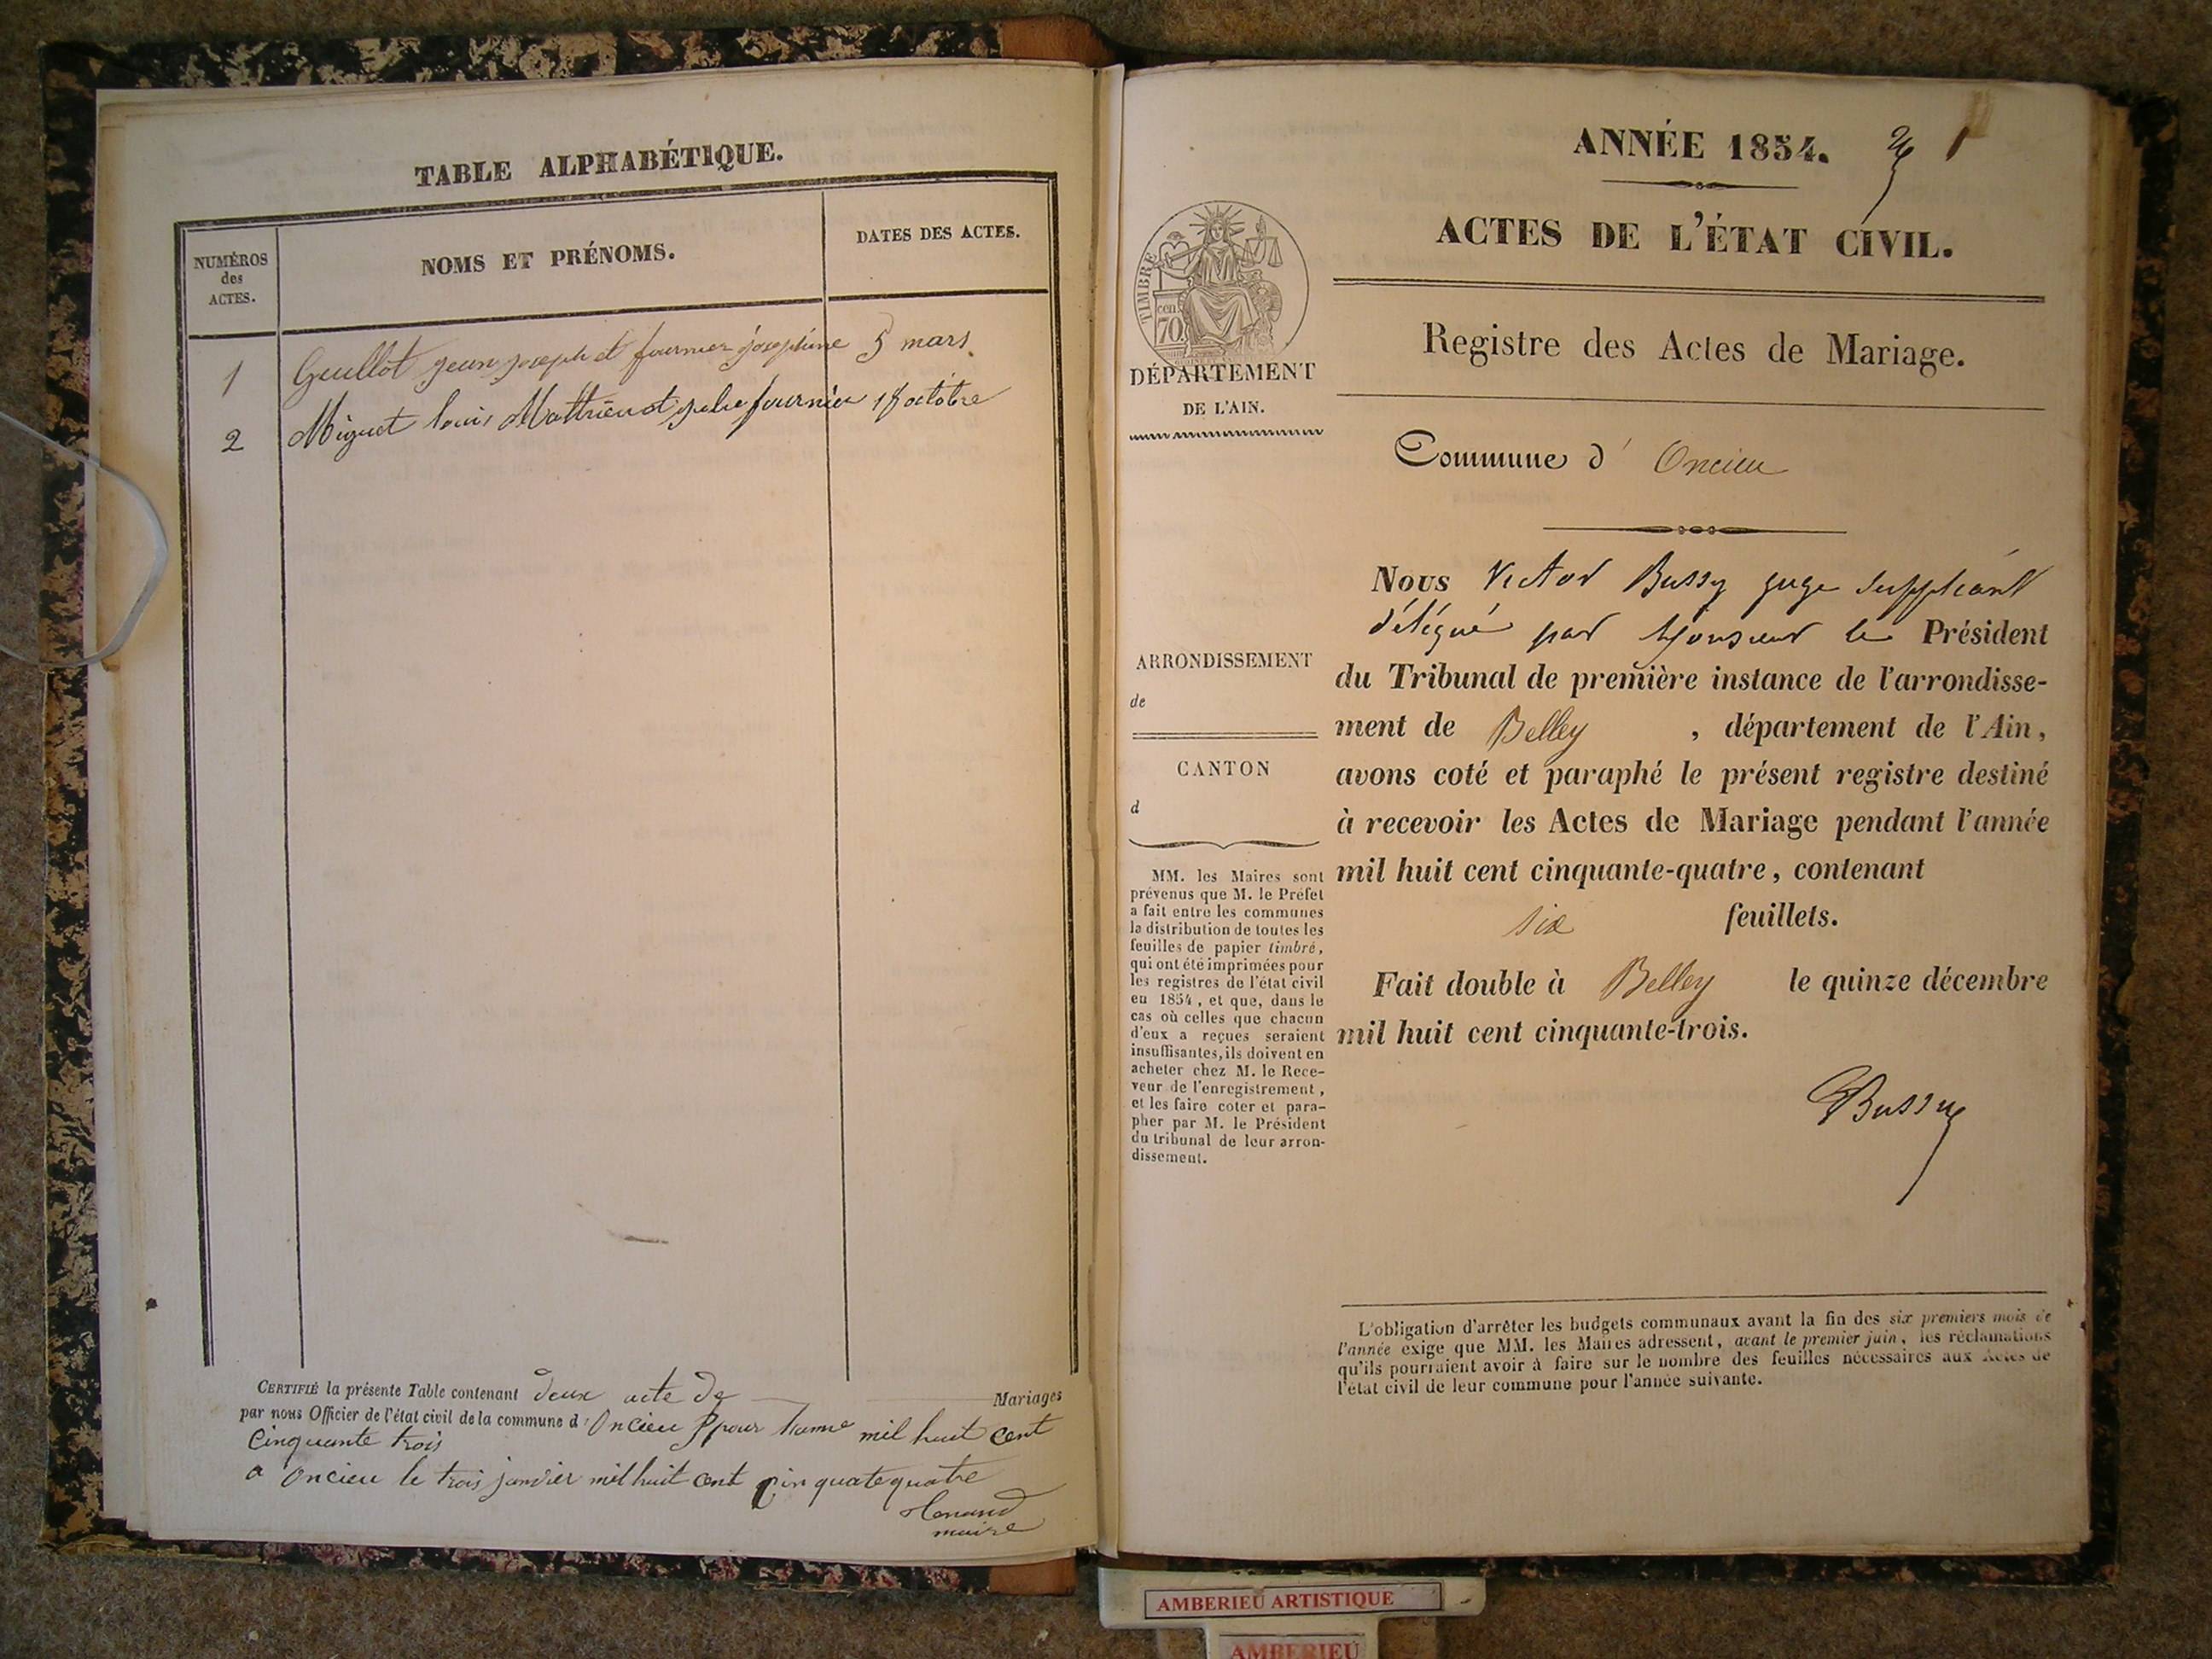 TABLE ALPHABÉTIQUE.
NUMÉROS
des
ACTES.
NOMS ET PRÉNOMS.
DATES DES ACTES.
1 Guillot jean joseph et fournier josephine 5 mars
2 Miguet louis Mathieu et julie fournier 18 octobre
CERTIFIÉ la présente Table contenant deux acte de Mariages
par nous Officier de l'état civil de la commune d' Oncieu pour mil huit cent
cinquante trois
a oncieu le trois janvier mil huit cent cinquatequatre
maire
ANNÉE 1854. 1
ACTES DE L'ÉTAT CIVIL.
Registre des Actes de Mariage.
TIMBRE
70 cen.
DÉPARTEMENT
DE L'AIN.
Commune d' Oncieu
Nous Victor Bussy juge suppléant
délégué par Monsieur le Président
du Tribunal de première instance de l'arrondisse-
ment de Belley , département de l'Ain,
avons coté et paraphé le présent registre destiné
à recevoir les Actes de Mariage pendant l'année
mil huit cent cinquante-quatre, contenant
six feuillets.
Fait double à Belley le quinze décembre
mil huit cent cinquante-trois.
Bussy
ARRONDISSEMENT
de
CANTON
d
MM. les Maires sont
prévenus que M. le Préfet
a fait entre les communes
la distribution de toutes les
feuilles de papier timbré,
qui ont été imprimées pour
les registres de l'état civil
en 1854, et que, dans le
cas où celles que chacun
d'eux a reçues seraient
insuffisantes, ils doivent en
acheter chez M. le Rece-
veur de l'enregistrement,
et les faire coter et para-
pher par M. le Président
du tribunal de leur arron-
dissement.
L'obligation d'arrêter les budgets communaux avant la fin des six premiers mois de
l'année exige que MM. les Maires adressent, avant le premier juin, les réclamations
qu'ils pourraient avoir à faire sur le nombre des feuilles nécessaires aux Actes de
l'état civil de leur commune pour l'année suivante.
AMBERIEU ARTISTIQUE
AMBERIEU